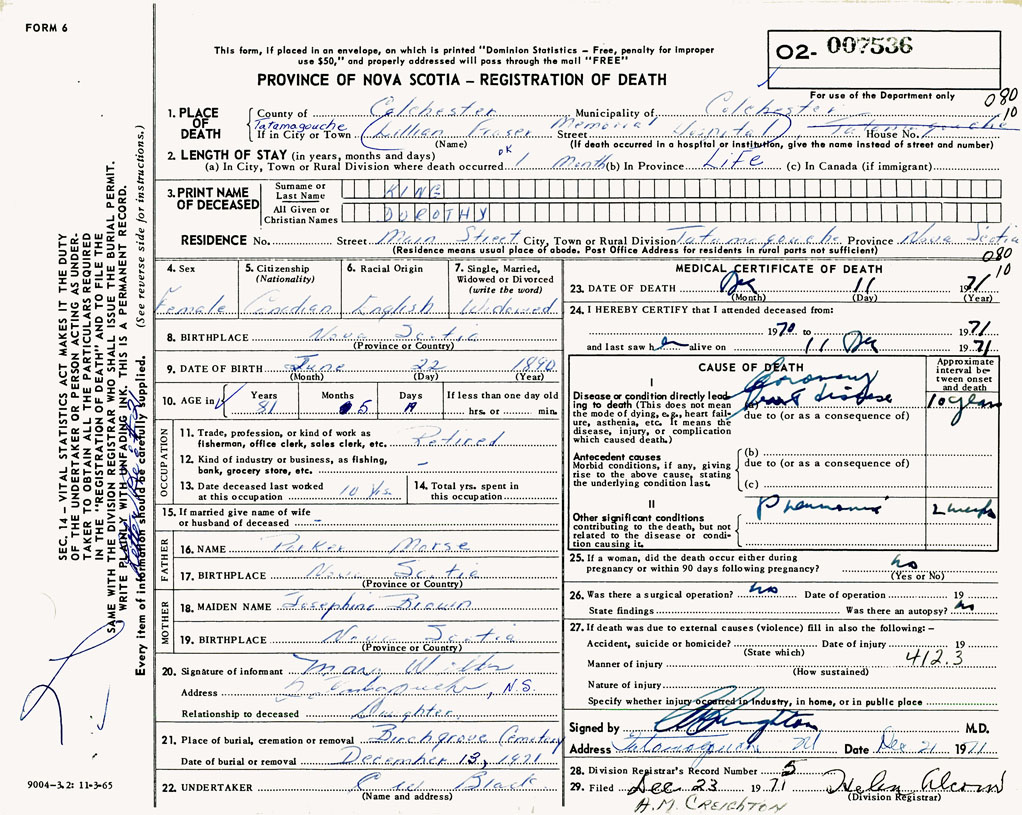 FORM 6
This form, if placed in an envelope, on which is printed "Dominion Statistics – Free, penalty for improper
use $50," and properly addressed will pass through the mail "FREE"
PROVINCE OF NOVA SCOTIA – REGISTRATION OF DEATH
02- 007536
For use of the Department only
080
10
1. PLACE OF DEATH
County of Colchester Municipality of Colchester
Tatamagouche
If in City or Town (Lillian Fraser Memorial Hospital) Street Tatamagouche House No.
(Name) (If death occurred in a hospital or institution, give the name instead of street and number)
2. LENGTH OF STAY (in years, months and days) OK
(a) In City, Town or Rural Division where death occurred 1 Month (b) In Province Life (c) In Canada (if immigrant)
3. PRINT NAME OF DECEASED
Surname or Last Name KING
All Given or Christian Names DOROTHY
RESIDENCE No. Street Main Street City, Town or Rural Division Tatamagouche Province Nova Scotia
(Residence means usual place of abode. Post Office Address for residents in rural parts not sufficient)
080
10
4. Sex
Female
5. Citizenship
(Nationality)
Candian
6. Racial Origin
English
7. Single, Married,
Widowed or Divorced
(write the word)
Widowed
8. BIRTHPLACE Nova Scotia
(Province or Country)
9. DATE OF BIRTH June 22 1890
(Month) (Day) (Year)
10. AGE in Years 81 Months 5 Days 19 If less than one day old
hrs. or min.
OCCUPATION
11. Trade, profession, or kind of work as
fisherman, office clerk, sales clerk, etc. Retired
12. Kind of industry or business, as fishing,
bank, grocery store, etc. -
13. Date deceased last worked
at this occupation 10 yrs.
14. Total yrs. spent in
this occupation
15. If married give name of wife
or husband of deceased -
FATHER
16. NAME Parker Morse
17. BIRTHPLACE Nova Scotia
(Province or Country)
MOTHER
18. MAIDEN NAME Josephine Brown
19. BIRTHPLACE Nova Scotia
(Province or Country)
20. Signature of informant Mary
Address Tatamagouche, N.S.
Relationship to deceased Daughter
21. Place of burial, cremation or removal Birchgrove Cemetery
Date of burial or removal December 13, 1971
22. UNDERTAKER Black
(Name and address)
MEDICAL CERTIFICATE OF DEATH
23. DATE OF DEATH Dec 11 1971
(Month) (Day) (Year)
24. I HEREBY CERTIFY that I attended deceased from:
1970 to 1971
and last saw her alive on 11 Dec 1971
CAUSE OF DEATH
Approximate interval between onset and death
I
Disease or condition directly leading to death (This does not mean
the mode of dying, e.g., heart failure, asthenia, etc. It means the
disease, injury, or complication
which caused death.)
(a) Coronary heart disease 10 years
due to (or as a consequence of)
Antecedent causes
Morbid conditions, if any, giving
rise to the above cause, stating
the underlying condition last.
(b)
due to (or as a consequence of)
(c)
II
Other significant conditions
contributing to the death, but not
related to the disease or condition causing it.
Pneumonia 2 weeks
25. If a woman, did the death occur either during
pregnancy or within 90 days following pregnancy? no
(Yes or No)
26. Was there a surgical operation? no Date of operation 19
State findings Was there an autopsy? no
27. If death was due to external causes (violence) fill in also the following: –
Accident, suicide or homicide? Date of injury 19
(State which)
412.3
Manner of injury
(How sustained)
Nature of injury
Specify whether injury occurred in industry, in home, or in public place
Signed by Creighton M.D.
Address Tatamagouche NS Date Dec 21 1971
28. Division Registrar's Record Number 5
29. Filed Dec 23 1971 Helen Alcorn
(Division Registrar)
A.M. CREIGHTON
SEC. 14 – VITAL STATISTICS ACT MAKES IT THE DUTY
OF THE UNDERTAKER OR PERSON ACTING AS UNDER-
TAKER TO OBTAIN ALL THE PARTICULARS REQUIRED
IN THE "REGISTRATION OF DEATH" AND TO FILE THE
SAME WITH THE DIVISION REGISTRAR WHO SHALL ISSUE THE BURIAL PERMIT.
WRITE PLAINLY WITH UNFADING INK. THIS IS A PERMANENT RECORD.
Every item of information should be carefully supplied. (See reverse side for instructions.)
9004-3.2: 11-3-65